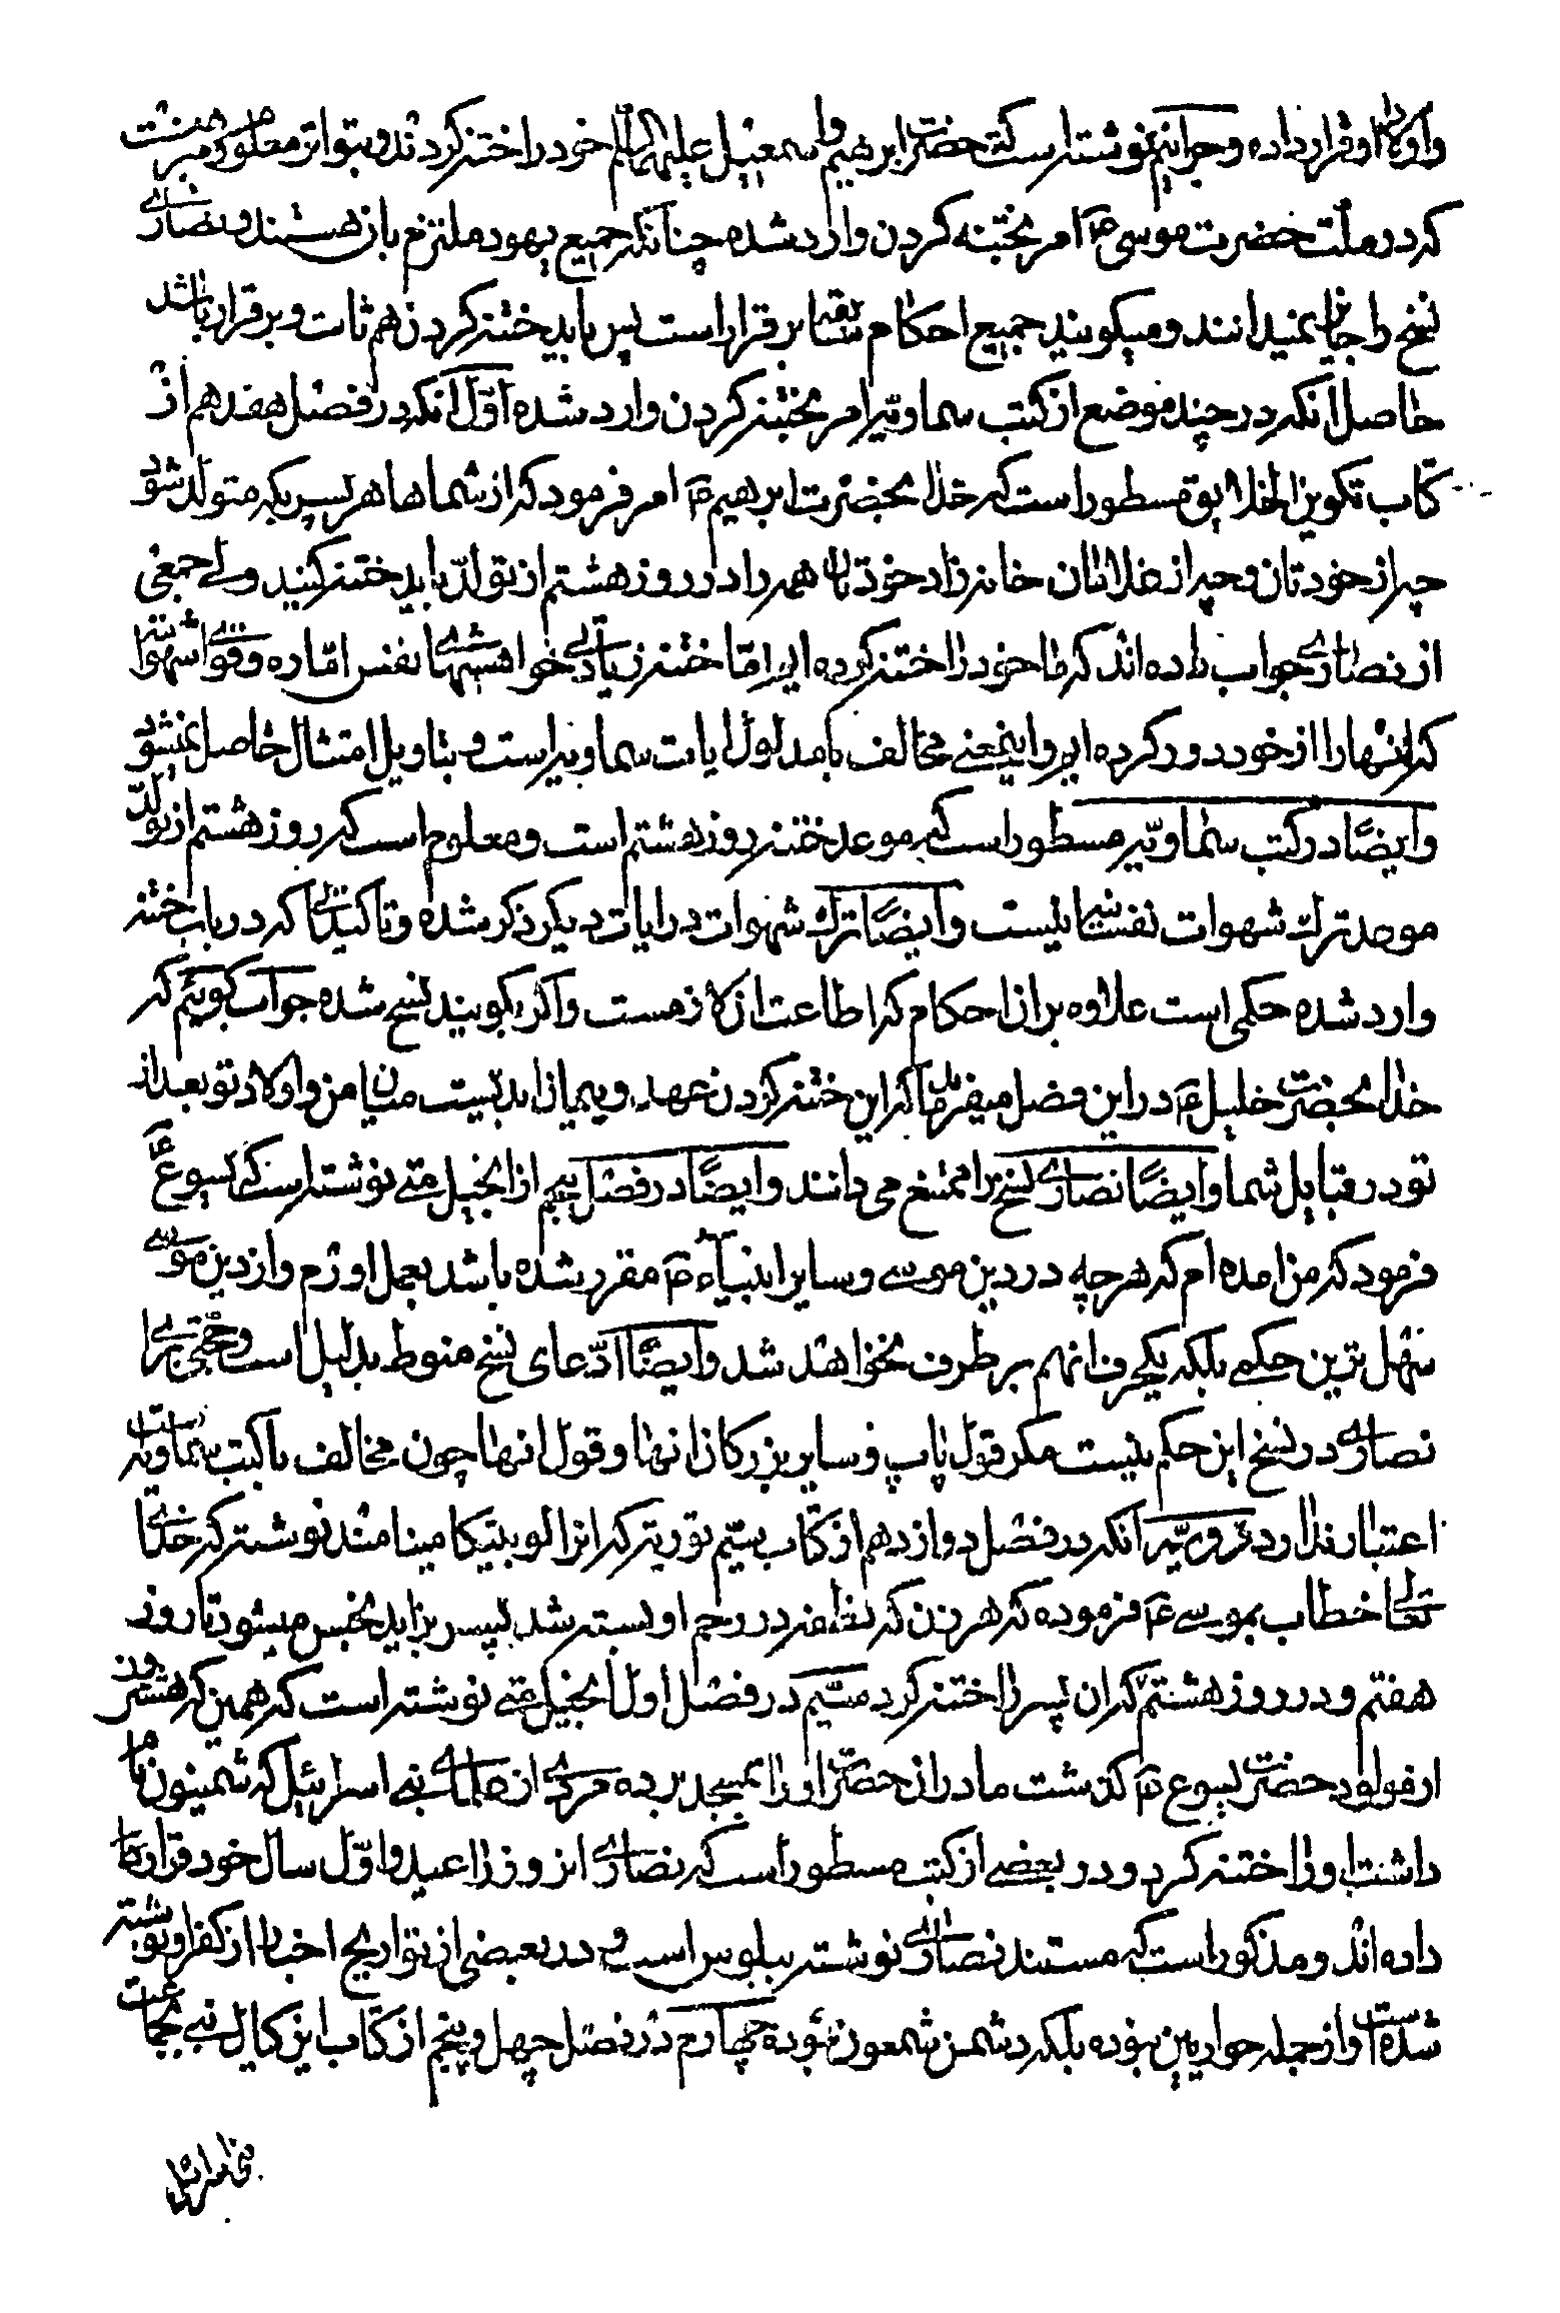 واولاد او قرار داده و جرانیم نوشته است که حضرت ابرهیم و اسمعیل علیهماالسلام خود را ختنه کردند و بتواتر معلوم
که در ملت حضرت موسی ع امر بختنه کردن وارد شده چنانکه جمیع یهود ملتزم بان هستند و نصاری
نسخ را جایز نمیدانند و میگویند جمیع احکام سابقه برقرار است پس باید ختنه کردن هم ثابت و برقرار باشد
حاصل آنکه در چند موضع از کتب سماویه امر بختنه کردن وارد شده اوّل آنکه در فصل هفدهم از
کتاب تکوین الخلایق مسطور است که خدا بحضرت ابرهیم ع امر فرمود که از شماها هر پسریکه متولد شود
چه از خودتان و چه از غلامان خانه زاد خودتان همه را در روز هشتم از تولّد باید ختنه کنید ولی جمعی
از نصاری جواب داده اند که ما خود را ختنه کرده ایم امّا ختنه زیادتی خواهشهای نفس امّاره و قوای شهوانیه
که انها را از خود دور کرده ایم و اینمعنی مخالف با مدلول ایات سماویه است و بتاویل امتثال حاصل نمیشود
وایضًا در کتب سماویّه مسطور است که موعد ختنه روز هشتم است و معلوم است که روز هشتم از تولّد
موعد ترک شهوات نفسانیه نیست وایضًا ترک شهوات در ایات دیگر ذکر شده و تاکیداتی که در باب ختنه
وارد شده حکمی است علاوه بر ان احکام که اطاعت ان لازمست و اگر بگویند نسخ شده جواب گوییم که
خدا بحضرت خلیل ع در این فصل میفرماید که این ختنه کردن عهد و پیمان ابدیست میان من و اولاد تو بعد از
تو در قبایل شما وایضًا نصاری نسخ را ممتنع می دانند وایضًا در فصل پنجم از انجیل متی نوشته است که یسوع ع
فرمود که من امده ام که هر چه در دین موسی و سایر انبیاء ع مقرر شده باشد بعمل اورم و از دین موسی
سهل ترین حکمی بلکه یکحرف انهم بر طرف نخواهد شد وایضًا ادّعای نسخ منوط بدلیل است و حجتی برای
نصاری در نسخ این حکم نیست مگر قول پاپ و سایر بزرگان انها و قول انها چون مخالف با کتب سماویه است
اعتبار ندارد دویّم آنکه در فصل دوازدهم از کتاب سیّم توریة که انرا لویتیکا مینامند نوشته که خدای
تعالی خطاب بموسی ع فرموده که هر زن که نطفه در رحم او بسته شد و پسر بزاید نجس میشود تا روز
هفتم و در روز هشتم که ان پسر را ختنه کرد سیّم در فصل اول انجیل متی نوشته است که همین که هشت روز
از مولود حضرت یسوع ع گذشت مادر ان حضرت او را بمسجد برده مردی از علمای بنی اسرائیل که شمیون نام
داشت او را ختنه کرد و در بعضی از کتب مسطور است که نصاری انروز را عید و اوّل سال خود قرار
داده اند و مذکور است که مستند نصاری نوشته ببلوس است و در بعضی از تواریخ اخبار از کفر او نوشته
شده است و از جمله حواریین نبوده بلکه دشمن شمعون بوده چهارم در فصل چهل و پنجم از کتاب ایزکیال نبی بجماعت